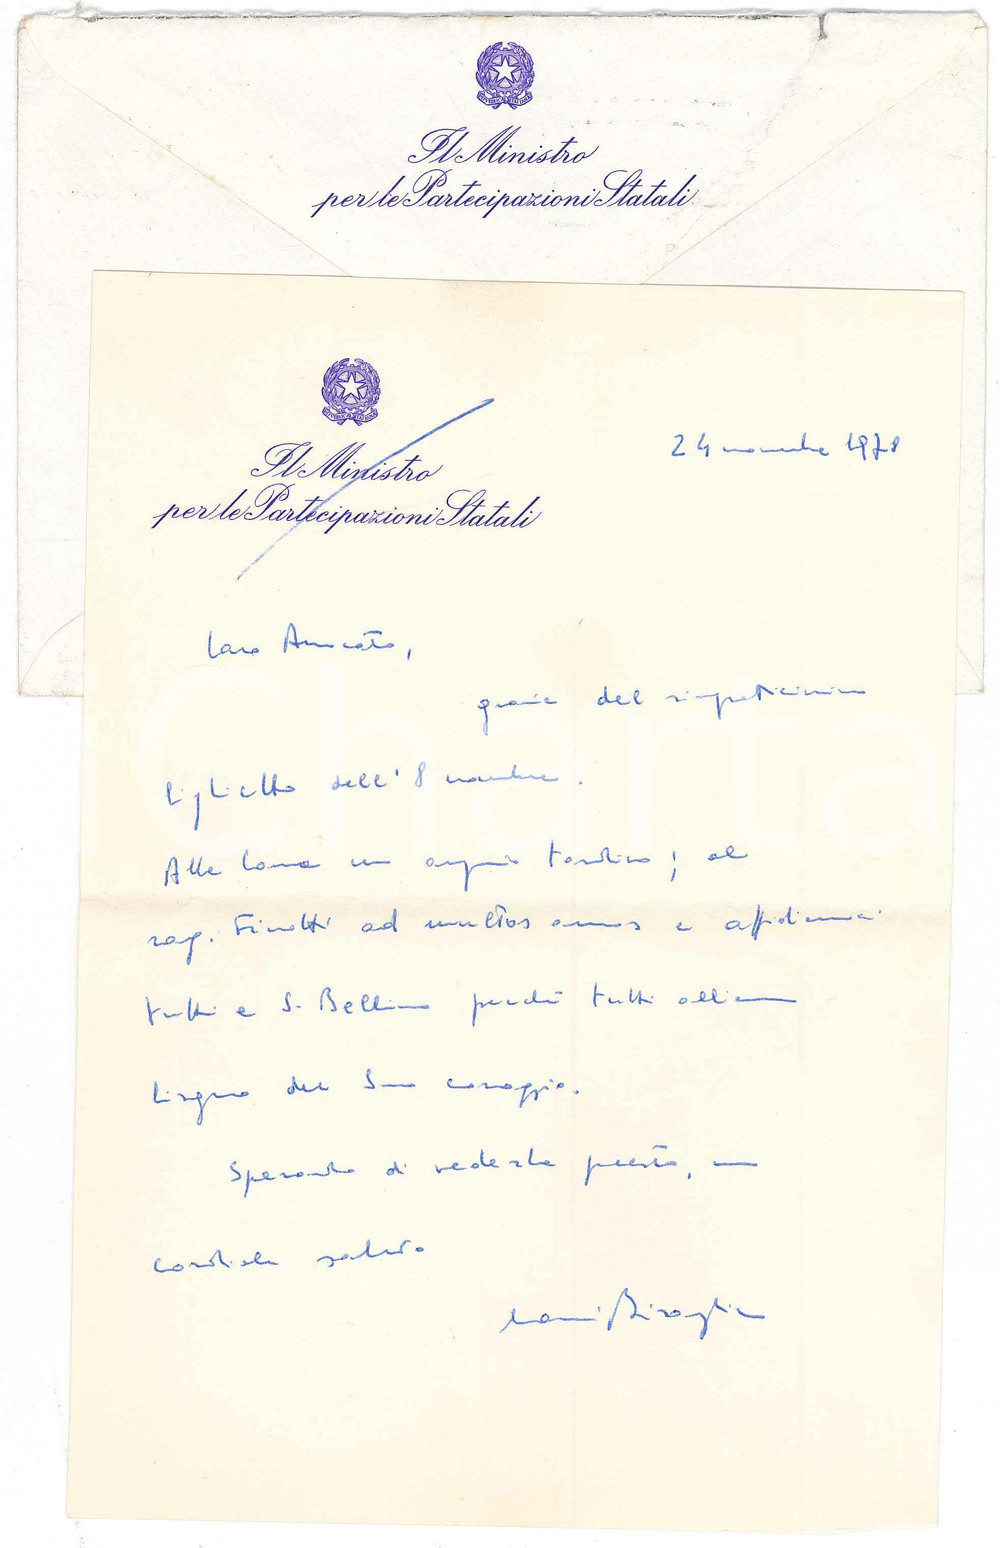 Il Ministro
per le Partecipazioni Statali
Il Ministro
per le Partecipazioni Statali
24 novembre 1978
Caro Avvocato,
grazie del simpaticissimo
biglietto dell'8 novembre.
Alla Cara un augurio tardivo; al
rag. Finotti ad multos annos e affidiamoci
tutti a S. Bellino perché tutti abbiamo
bisogno del Suo coraggio.
Sperando di vederla presto, un
cordiale saluto
Toni Bisaglia
Charta